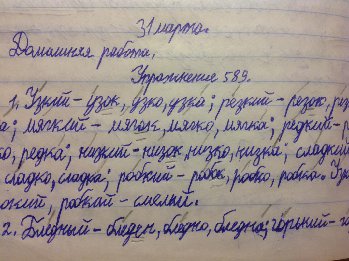 31 марта.
Домашняя работа.
Упражнение 589.
1. Узкий – узок, узко, узка; резкий – резок, рез
ка; мягкий – мягок, мягко, мягка; редкий – р
ко, редка; низкий – низок, низко, низка; сладкий
сладко, сладка; робкий – робок, робко, робка. Уз
робкий – смелый.
2. Бледный – бледен, бледно, бледна; горький – го